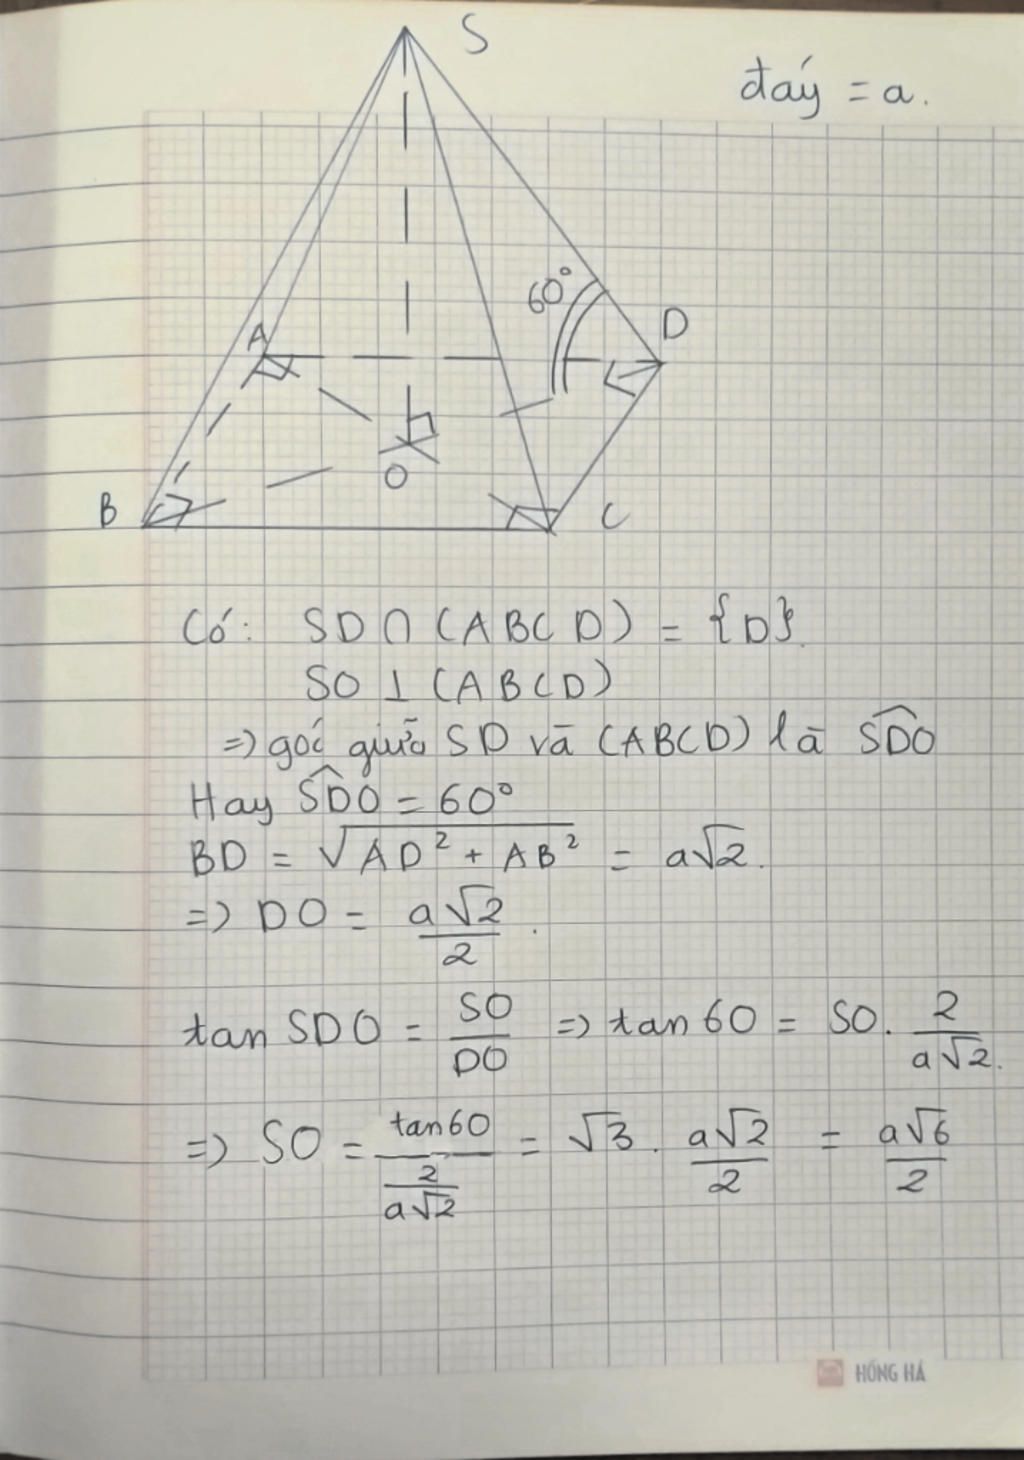 S
đáy = a.
60°
A
D
O
B
C
Có: SD ∩ (ABCD) = {D}.
SO ⊥ (ABCD)
=> góc giữa SD và (ABCD) là \widehat{SDO}
Hay \widehat{SDO} = 60°
BD = √(AD² + AB²) = a√2.
=> DO = \frac{a√2}{2}.
tan SDO = \frac{SO}{DO} => tan 60 = SO. \frac{2}{a√2}.
=> SO = \frac{tan 60}{\frac{2}{a√2}} = √3 . \frac{a√2}{2} = \frac{a√6}{2}
HỒNG HÀ